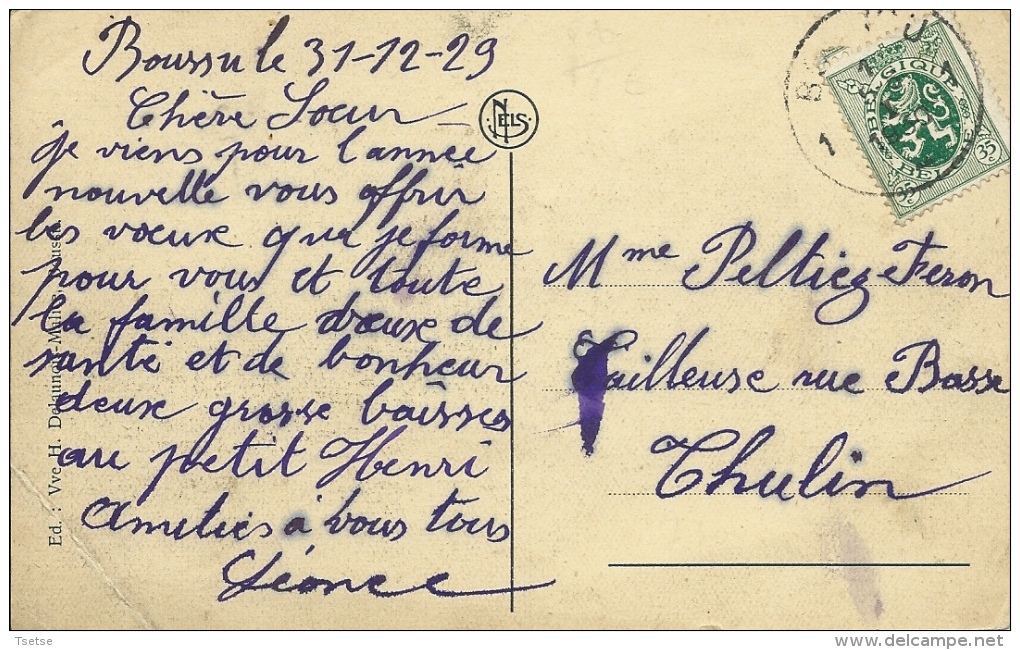 Boussu le 31-12-29
Chère Soeur
je viens pour l'année
nouvelle vous offrir
les voeux que je forme
pour vous et toute
la famille doeuxe de
santé et de bonheur
deux grosse baisses
au petit Henri
Amitiés à vous tous
Léonce
NELS
Ed. : Vve H. Delaunois
BELGIQUE
BELGIE
35c
35c
Mme Peltiez-Feron
Tailleuse rue Basse
Thulin
Tsetse
delcampe.net